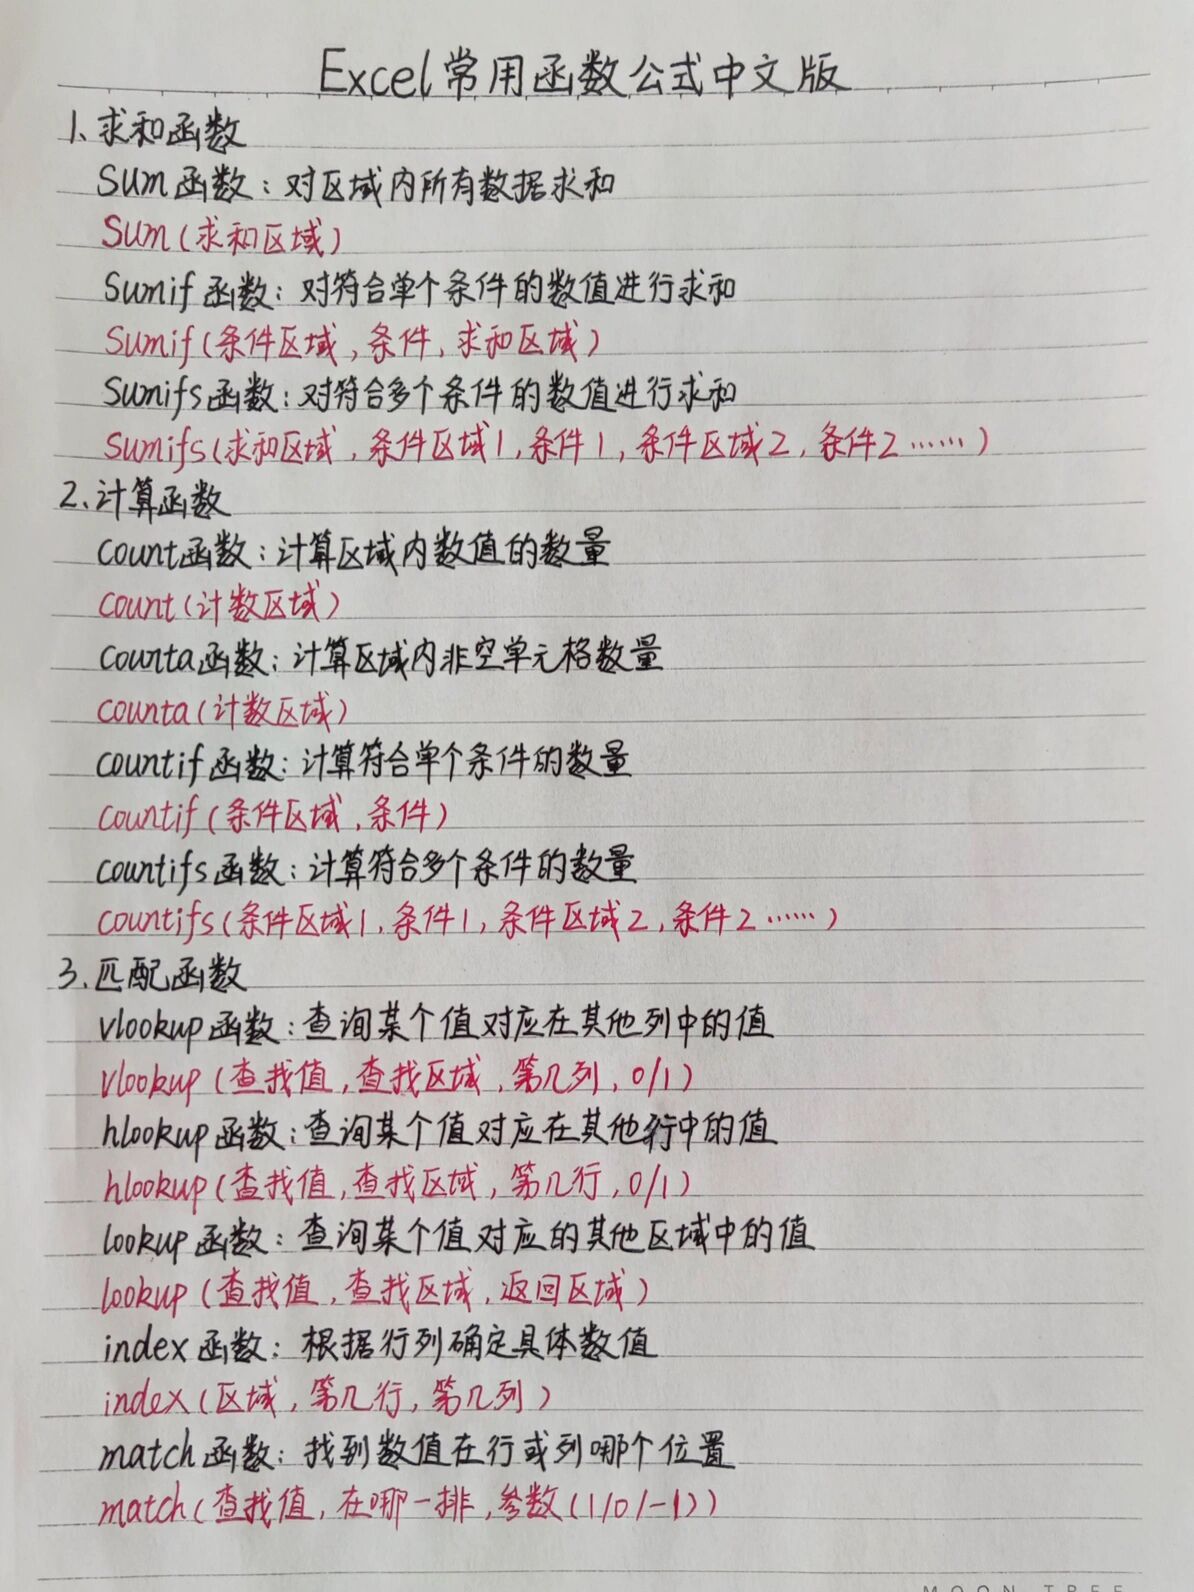 Excel常用函数公式中文版
1、求和函数
Sum函数：对区域内所有数据求和
Sum(求和区域)
Sumif函数：对符合单个条件的数值进行求和
Sumif(条件区域,条件,求和区域)
Sumifs函数：对符合多个条件的数值进行求和
Sumifs(求和区域,条件区域1,条件1,条件区域2,条件2……)
2、计算函数
count函数：计算区域内数值的数量
count(计数区域)
counta函数：计算区域内非空单元格数量
counta(计数区域)
countif函数：计算符合单个条件的数量
countif(条件区域,条件)
countifs函数：计算符合多个条件的数量
countifs(条件区域1,条件1,条件区域2,条件2……)
3、匹配函数
vlookup函数：查询某个值对应在其他列中的值
vlookup(查找值,查找区域,第几列,0/1)
hlookup函数：查询某个值对应在其他行中的值
hlookup(查找值,查找区域,第几行,0/1)
lookup函数：查询某个值对应的其他区域中的值
lookup(查找值,查找区域,返回区域)
index函数：根据行列确定具体数值
index(区域,第几行,第几列)
match函数：找到数值在行或列哪个位置
match(查找值,在哪一排,参数(1/0/-1))
MOON TREE